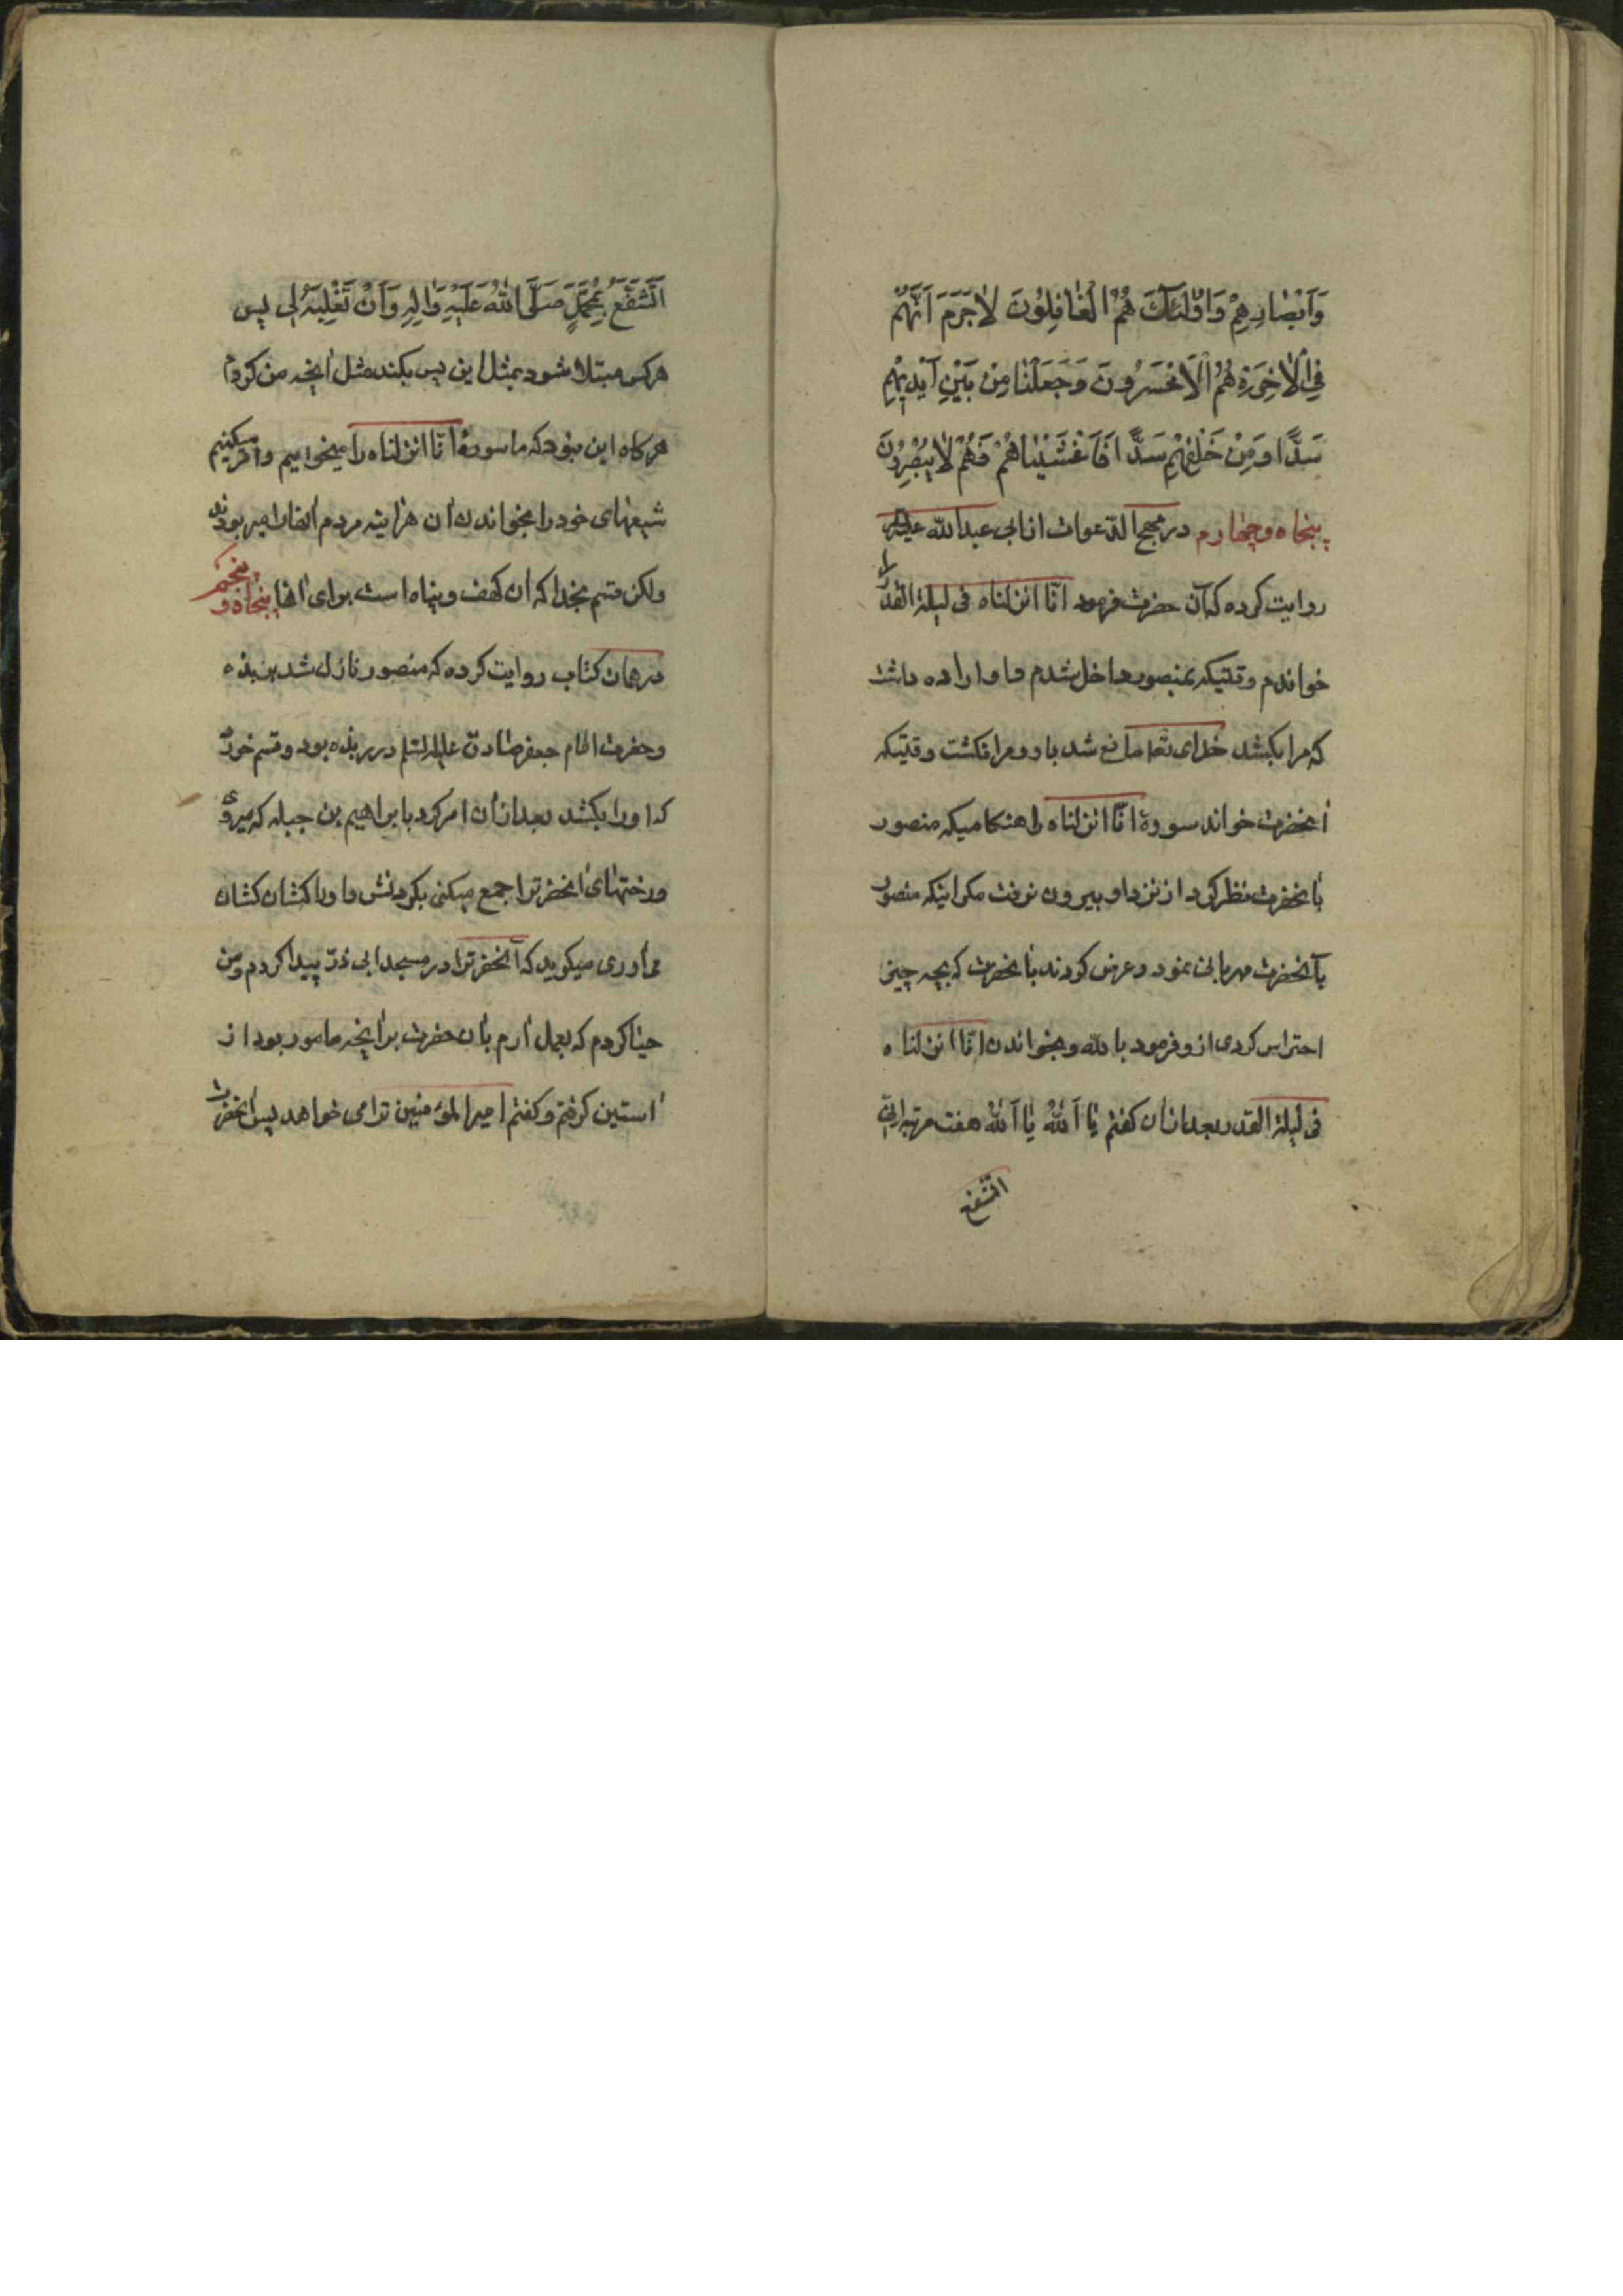 وَاَبْصٰارِهِمْ وَاُولٰئِكَ هُمُ الْغٰافِلُونَ لٰاجَرَمَ اَنَّهُمْ
فِى الْاٰخِرَةِ هُمُ الْاَخْسَرُونَ وَجَعَلْنٰا مِنْ بَيْنِ اَيْدِيهِمْ
سَدًّا وَمِنْ خَلْفِهِمْ سَدًّا فَاَغْشَيْنٰاهُمْ فَهُمْ لٰا يُبْصِرُونَ
پنجاه وچهارم در مهج الدّعوات از ابى عبدالله عليه
روايت كرده كه آن حضرت فرمود انّا انزلناه فى ليلة القدر را
خواندم وقتيكه بمنصور داخل شدم و او اراده داشت
كه مرا بكشد خداى تعا مانع شد باو ومرا نكشت وقتيكه
آنحضرت خواند سورۀ انّا انزلناه را هنكاميكه منصور
بآنحضرت نظر كرد از نزد او بيرون نرفت مكر اينكه منصور
بآنحضرت مهربانى نمود وعرض كردند بآنحضرت كه بچه چيز
احتراس كردى از و فرمود بالله وبخواندن انّا انزلناه
فى ليلة القدر بعد از آن كفتم يٰا اَللهُ يٰا اَللهُ هفت مرتبه انّى
اتشفع
اَتَشَفَّعُ بِمُحَمَّدٍ صَلَّى اللهُ عَلَيْهِ وَاٰلِهِ وَاَنْ تَغْلِبَهُ لِى پس
هر كس مبتلا شود بمثل اين پس بكند مثل آنچه من كردم
هر كاه اين نبود كه ما سورۀ انّا انزلناه را ميخوانيم وامر ميكنيم
شيعهاى خود را بخواندن آن هرآينه مردم آنها را ميربودند
ولكن قسم بخدا كه آن كهف وپناه است براى آنها پنجاه و پنجم
در همان كتاب روايت كرده كه منصور نازل شد بربذه
وحضرت امام جعفر صادق عليه السلم در ربذه بود وقسم خورد
كه او را بكشد بعد از آن امر كرد بابراهيم بن جبله كه ميروى
ورختهاى آنحضرترا جمع ميكنى بكردنش و او را كشان كشان
مياورى ميكويد كه آنحضرترا در مسجد ابى ذرّ پيدا كردم ومن
حيا كردم كه بعمل آرم بآن حضرت برآنچه مامور بود از
آستين كرفتم وكفتم امير المؤمنين ترا مى خواهد پس آنحضرت